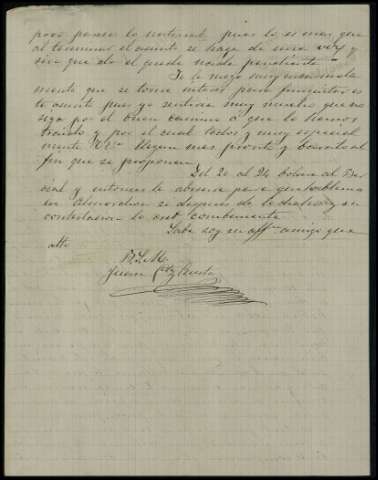 para poner la notarial, pues lo es mas que
al terminar el asunto se haga de una vez y
sin que de el quede nada pendiente.
Le ruego muy encarecida
mente que se tome interes para finiquitar es
te asunto pues yo sentiria muy mucho que no
siga por el buen camino á que lo hemos
traido y por el cual todos y muy especial
mente Vds. llegan mas pronto y
fin que se proponen
Del 20 al 24 volvere al
y entonces le avisare para que hablemos
en Almorchon si despues de
contestacion lo cree conveniente
Sabe soy su affmo. amigo que
atto
B.S.M.
Juan